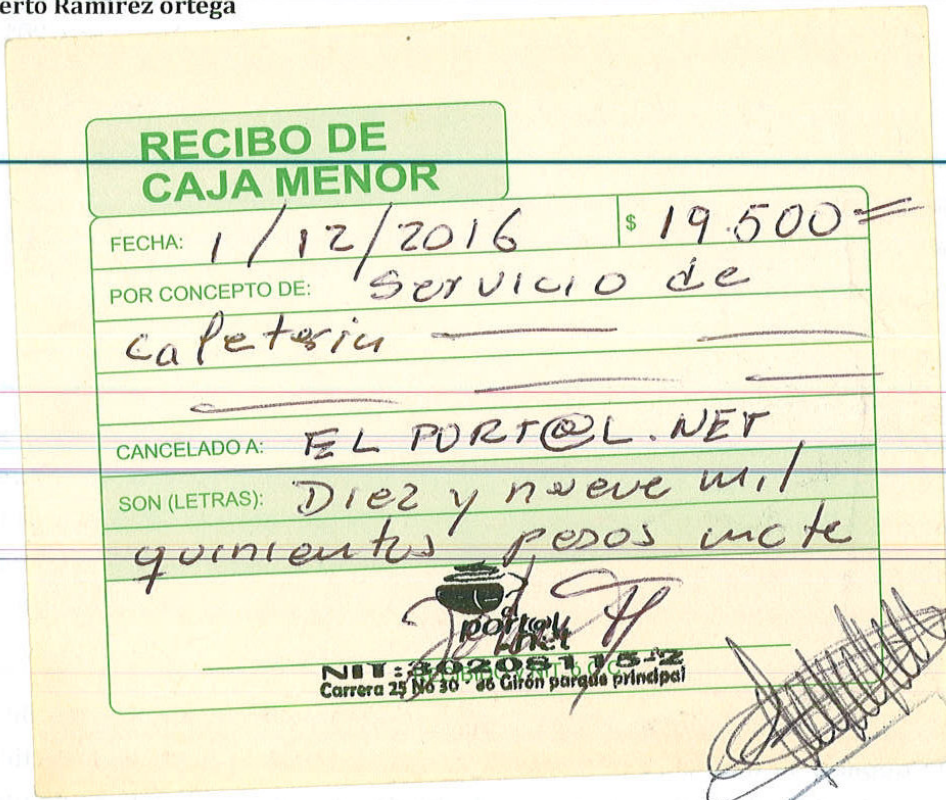 erto Ramírez ortega
RECIBO DE
CAJA MENOR
FECHA: 1/12/2016 $ 19.500=
POR CONCEPTO DE: Servicio de
cafeteria
CANCELADO A: EL PORT@L.NET
SON (LETRAS): Diez y nueve mil
quinientos pesos mcte
port@l
NIT:
Carrera 25 No 30 - 86 Girón parque principal